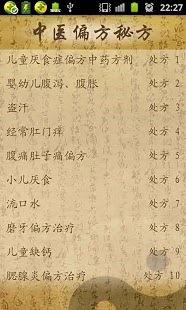 22:27
中医偏方秘方
儿童厌食症偏方中药方剂 处方 1
婴幼儿腹泻、腹胀 处方 2
盗汗 处方 3
经常肛门痒 处方 4
腹痛肚子痛偏方 处方 5
小儿厌食 处方 6
流口水 处方 7
磨牙偏方治疗 处方 8
儿童缺钙 处方 9
腮腺炎偏方治疗 处方 10